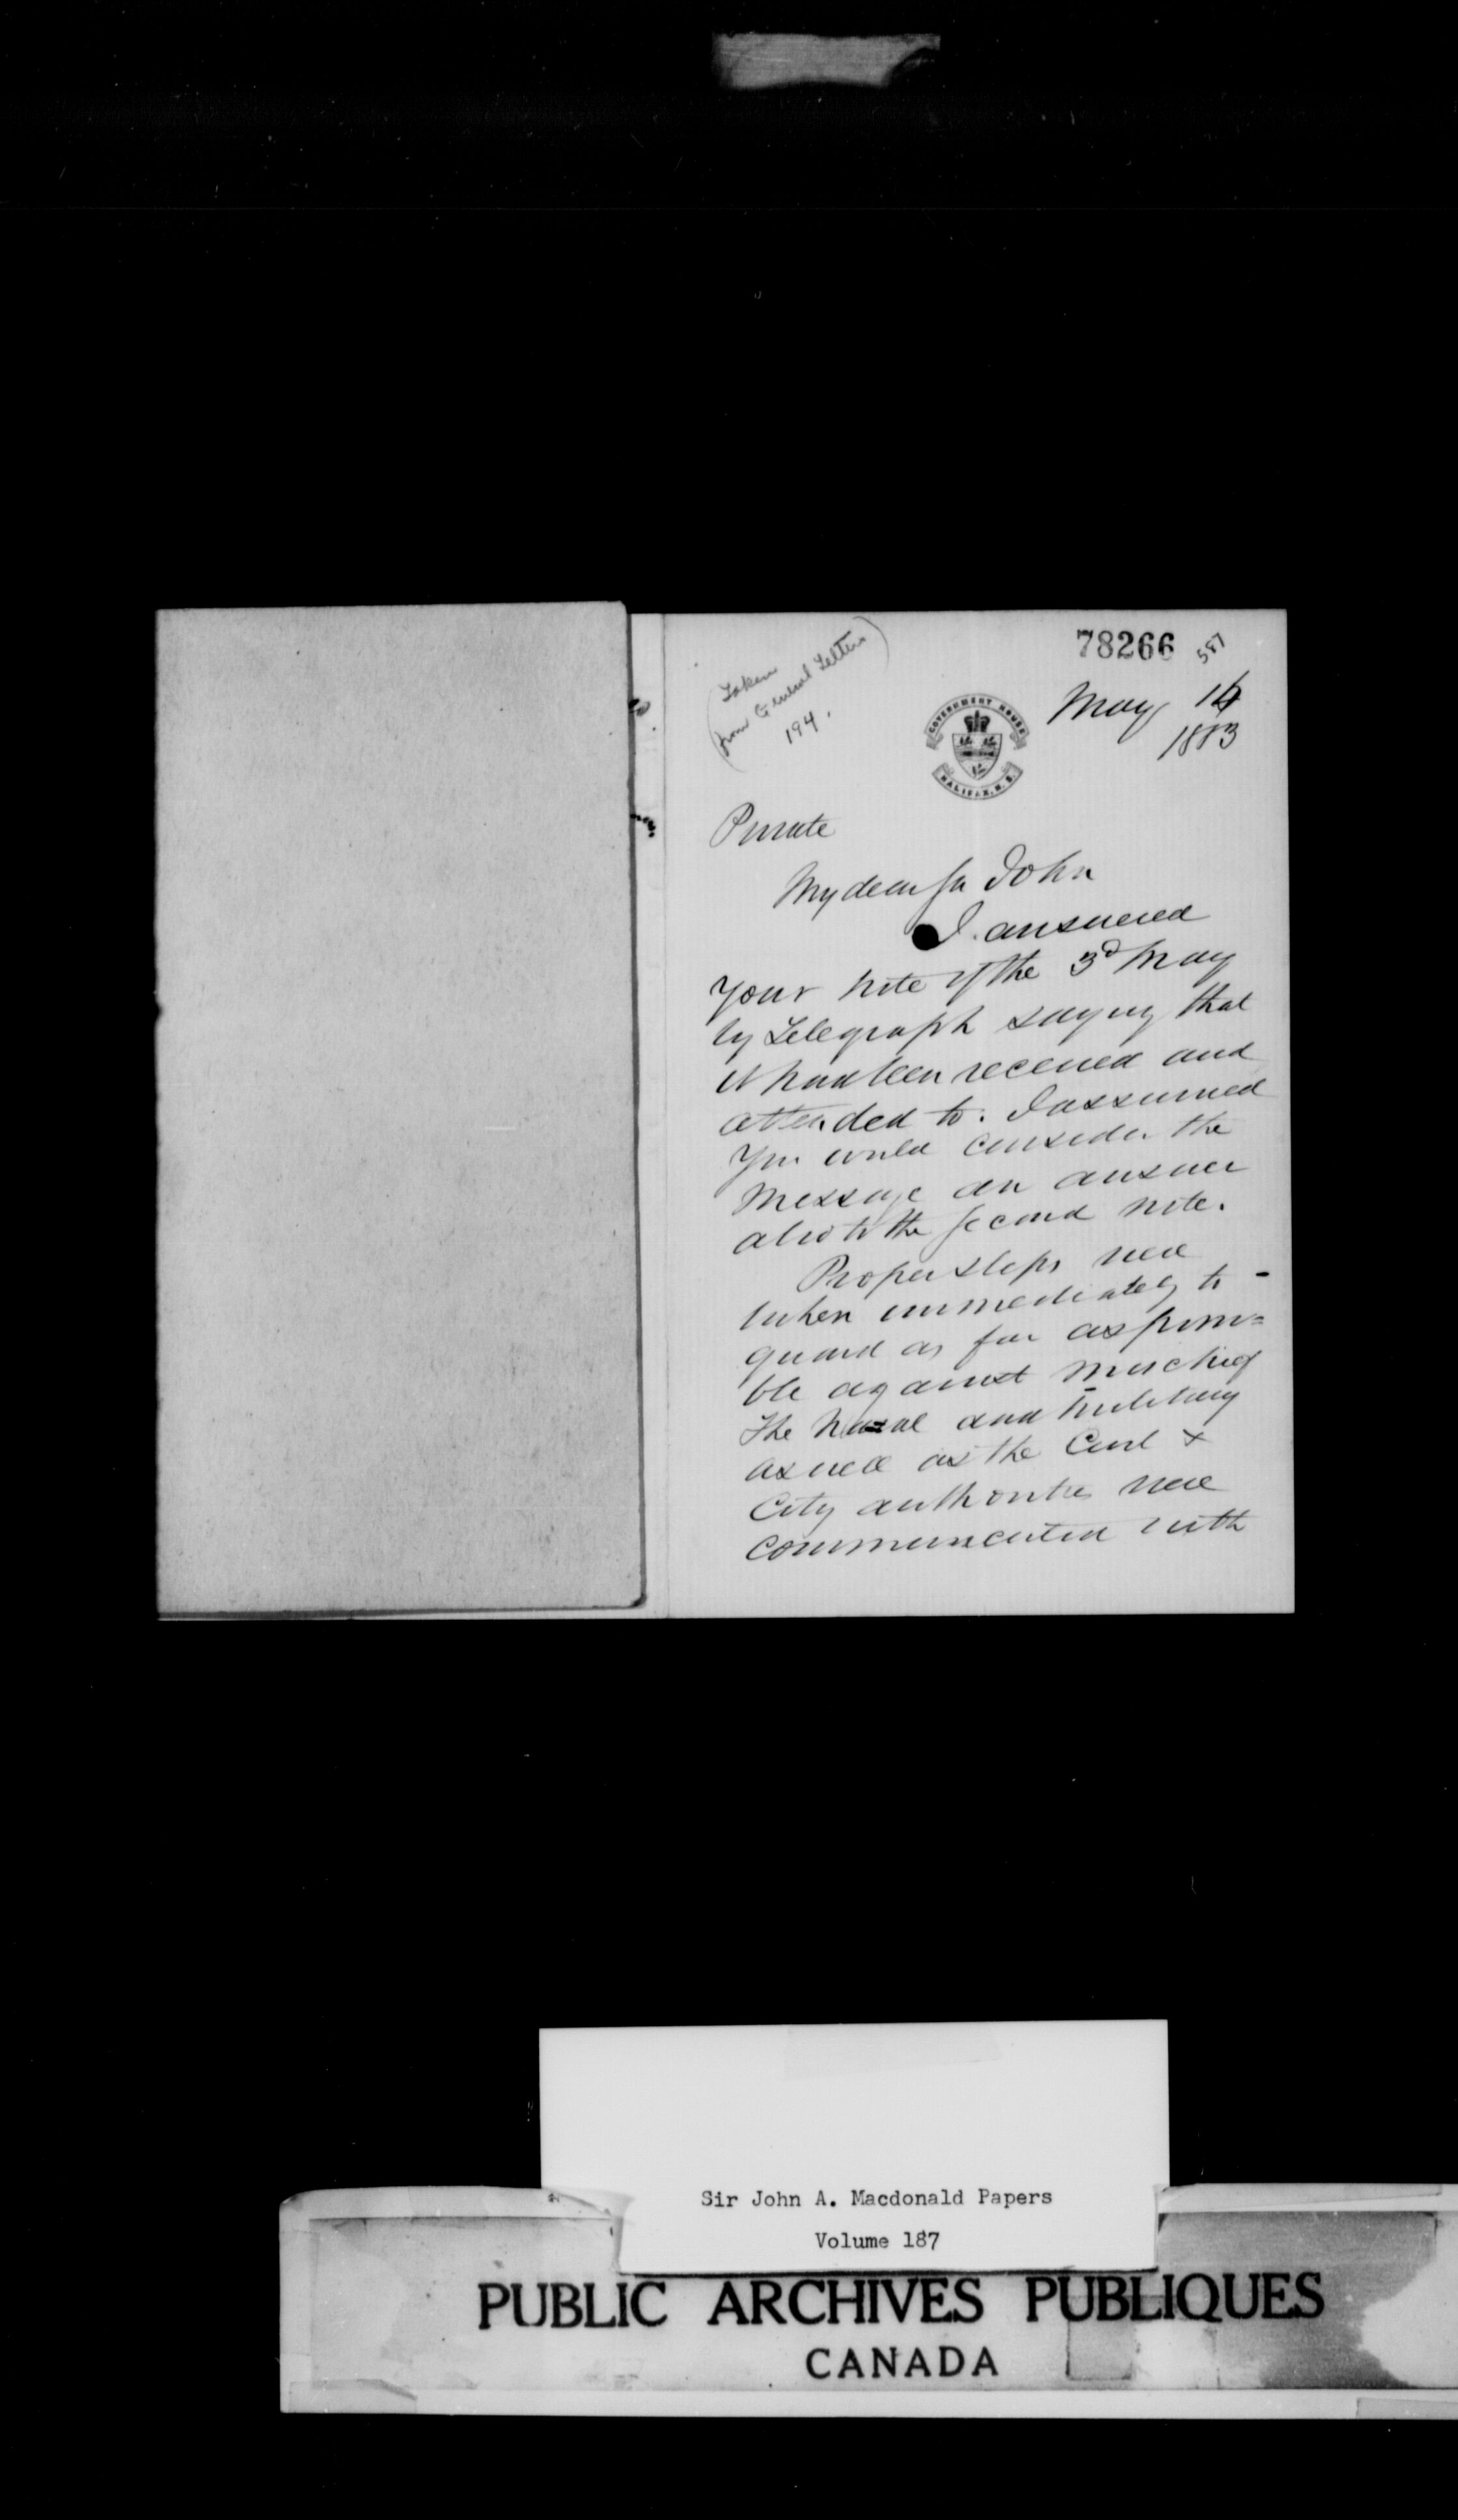 78266
587
(Taken
from General Letters)
194.
May 14
1883
GOVERNMENT HOUSE
HALIFAX, N.S.
Private
My dear Sir John
I answered
your note of the 3d May
by Telegraph saying that
it had been received and
attended to. I assumed
you would consider the
message an answer
also to the second note.
Proper steps were
taken immediately to
guard as far as possi=
ble against mischief
The Naval and Military
as well as the Civil &
City authorities were
communicated with
Sir John A. Macdonald Papers
Volume 187
PUBLIC ARCHIVES PUBLIQUES
CANADA